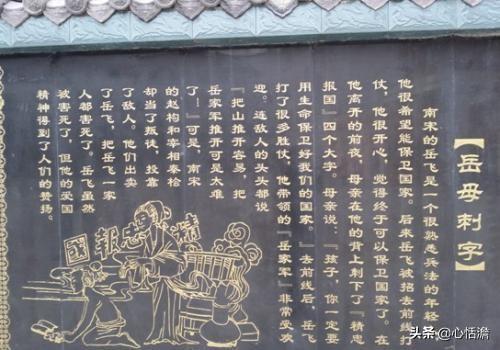 【岳母刺字】
南宋的岳飞是一个很熟悉兵法的年轻
他很希望能保卫国家。后来岳飞被招去前线打
仗，他很开心，觉得终于可以保卫国家了。在
他离开的前夜，母亲在他的背上刺下了『精忠
报国』四个大字。母亲说：『孩子，你一定要
用生命保卫好我们的国家。』去前线后，岳飞
打了很多胜仗，他带领的『岳家军』非常受欢
迎。连敌人的头头都说
『把山推开容易，把
岳家军推开可是太难
了！』可是，南宋
的赵构和宰相秦桧
却当了叛徒，投靠
了敌人。他们出卖
了岳飞，把岳飞一家
人都害死了。岳飞虽然
被害死了，但他的爱国
精神得到了人们的赞扬。
國報忠精
头条@心恬澹